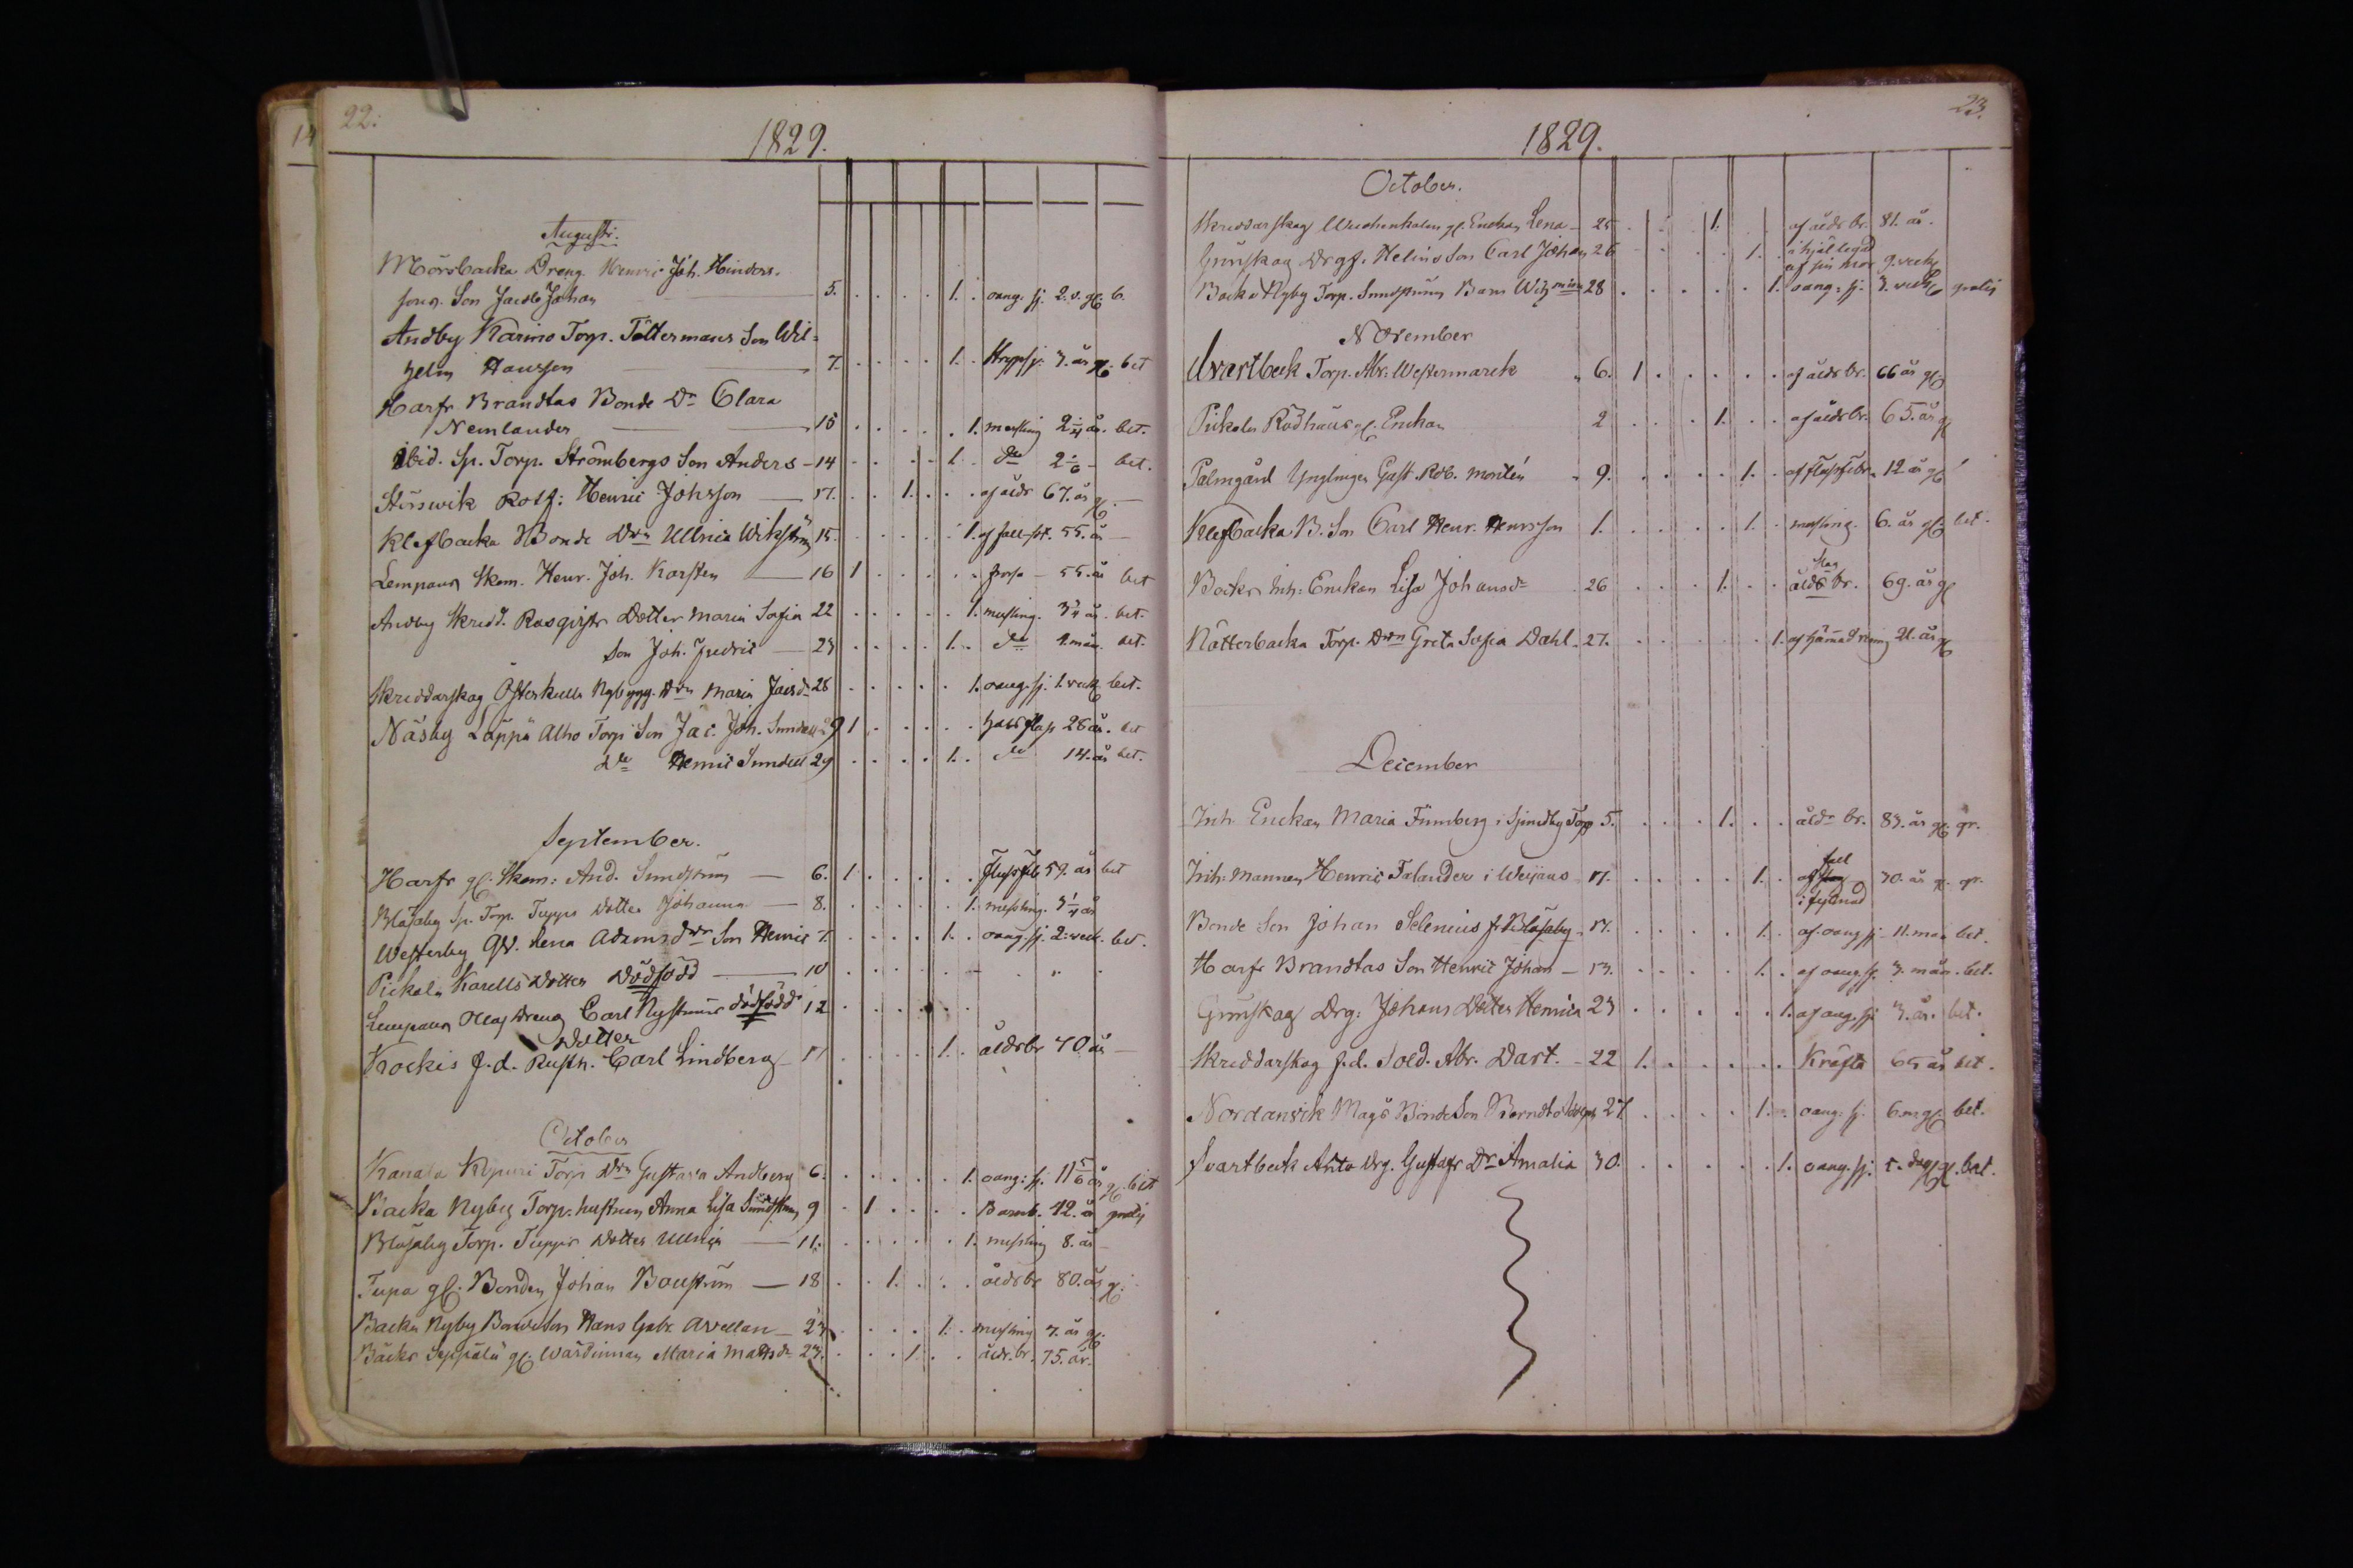 22.
1829.
Augusti.
Mörsbacka Dreng Henric Joh. Hinders-
sons Son Jacob Johan 5. . . . . 1. . oang. sj. 2. v. gl. b.
Andby Karins Torp. Töttermans Son Wil-
helm Hansson 7. . . . . 1. . 3. år gl. bet
Harfr Brandtas Bonde Dr Clara
Nemlander 15 . . . . . 1. messling 2 1/4 år. bet.
Ibid. Sp. Torp. Strömbergs Son Anders 14 . . . . 1. . do 2 1/6 bet.
Rotf: Henric Johsson 17. . . 1. . . . af åldr 67. år gl.
Klefbacka Bonde Drn Ulrica Wikström 15. . . . . . 1. af fall-st. 55. år
Lempans Skom. Henr. Joh. Karsten 16 1 . . . . . 55. år bet
Andby Skredd. Rosqvists Dotter Maria Sofia 22 . . . . . 1. messling. 3 3/4 år. bet.
Son Joh. Fredric 23 . . . . 1. . do 9. mån. bet.
Skreddarskog Österkulla Nybygg. Drn Maria Jacsdr 28 . . . . . 1. oang. sj. 1. veck. bet.
Näsby Lappa Alho Torp Son Jac. Joh. Sundell 29 1 . . . . . 26 år. bet
do Henric Sundell 29 . . . . 1. . do 14. år bet.
September.
Harfr gl. Skom: And. Sundström 6. 1 . . . . . 59. år bet
Blåsaby Sp. Torp. Tupps dotter Johanna 8. . . . . . 1. messling. 3 1/4 år
Westerby Qv. Lena Adamsdrn Son Henric 7. . . . . 1. . oang. sj. 2: veck. bet.
Pickala Karells Dotter Dödfödd 10
Lempans Olas Dreng Carl Nyströms dödfödd 12
Dotter
Kockis f. d. Rustn. Carl Lindberg 17 . . . . 1. . åldrbr 70 år
October
Kanala Torp Drn Gustava Andberg 6. . . . . . 1. oang: sj. 11 5/6 år gl. bet
Backa Nyby Torp. hustrun Anna Lisa Sundström 9 . 1 . . . . Barnb. 42. år gratis
Blåsaby Torp. Tupps dotter Ulrica 11. . . . . . 1. messling 8. år
Tupa gl. Bonden Johan Boström 18 . . 1. . . . åldrbr 80. år gl.
Backa Nyby Bondeson Hans Gabr. Avellan 23 . . . . 1. . messling 7. år gl.
Backa Seppälä gl. Wärdinnan Maria Mattsdr 23. . . . 1. . . åldr.br. 75. år.
23.
1829.
October.
Skreddarskog gl. Enckan Lena 25 . . . 1. . . af åldr br. 81. år.
ihjällegad
Grunskog Drgs. Helins Son Carl Johan 26 . . . . 1. . af sin mor 9. veck
Backa Nyby Torp. Sundströms Barn Wilhelmina 28 . . . . . 1. oang: sj. 3. veck gratis
November
Svartbeck Torp. Abr: Westermarck 6. 1 . . . . . af åldr br. 66 år gl.
Pickala Rödhaus gl. Enckan 2 . . . 1. . . af åldrbr. 65. år gl
Palmgård Ynglingen Gust. Rob. Montén 9. . . . . 1. . 12 år gl
Klefbacka B. Son Carl Henr. Henrsson 1. . . . . 1. . messling. 6. år gl. bet.
slag
Inh: Enckan Lisa Johansdr 26 . . . 1. . . åldr br. 69. år gl
Nötterbacka Torp. Drn Greta Sofia Dahl. 27. . . . . . 1. 21. år gl
December
Inh. Enckan Maria Finnberg i Sjundby Torp 5. . . . 1. . . åldr br. 83. år gl. gr.
fall
Inh: Mannen Henric Falander i Weijans 17. . . . . 1. . af slag 70. år gl. gr.
i fyllnad
Bonde Son Johan Selenius fr Blåsaby 17. . . . . 1. . af oang sj 11. mån bet.
Harfr Brandtas Son Henric Johan 13. . . . . 1. . af oang. sj. 3. mån. bet.
Grunskog Drg: Johans Dotter Henrica 23 . . . . . 1. af oang. sj 3. år. bet.
Skreddarskog f.d. Sold. Abr. Dart. 22 1. . . . . . Kräfta 65 år bet.
Nordanvik Mags Bonde Son Berndt Adolph 27 . . . . 1. . oang: sj. 6. m gl. bet.
Svartbeck Drg. Gustafs Dr Amalia 30. . . . . . 1. oang. sj. 5. dag gl. bet.